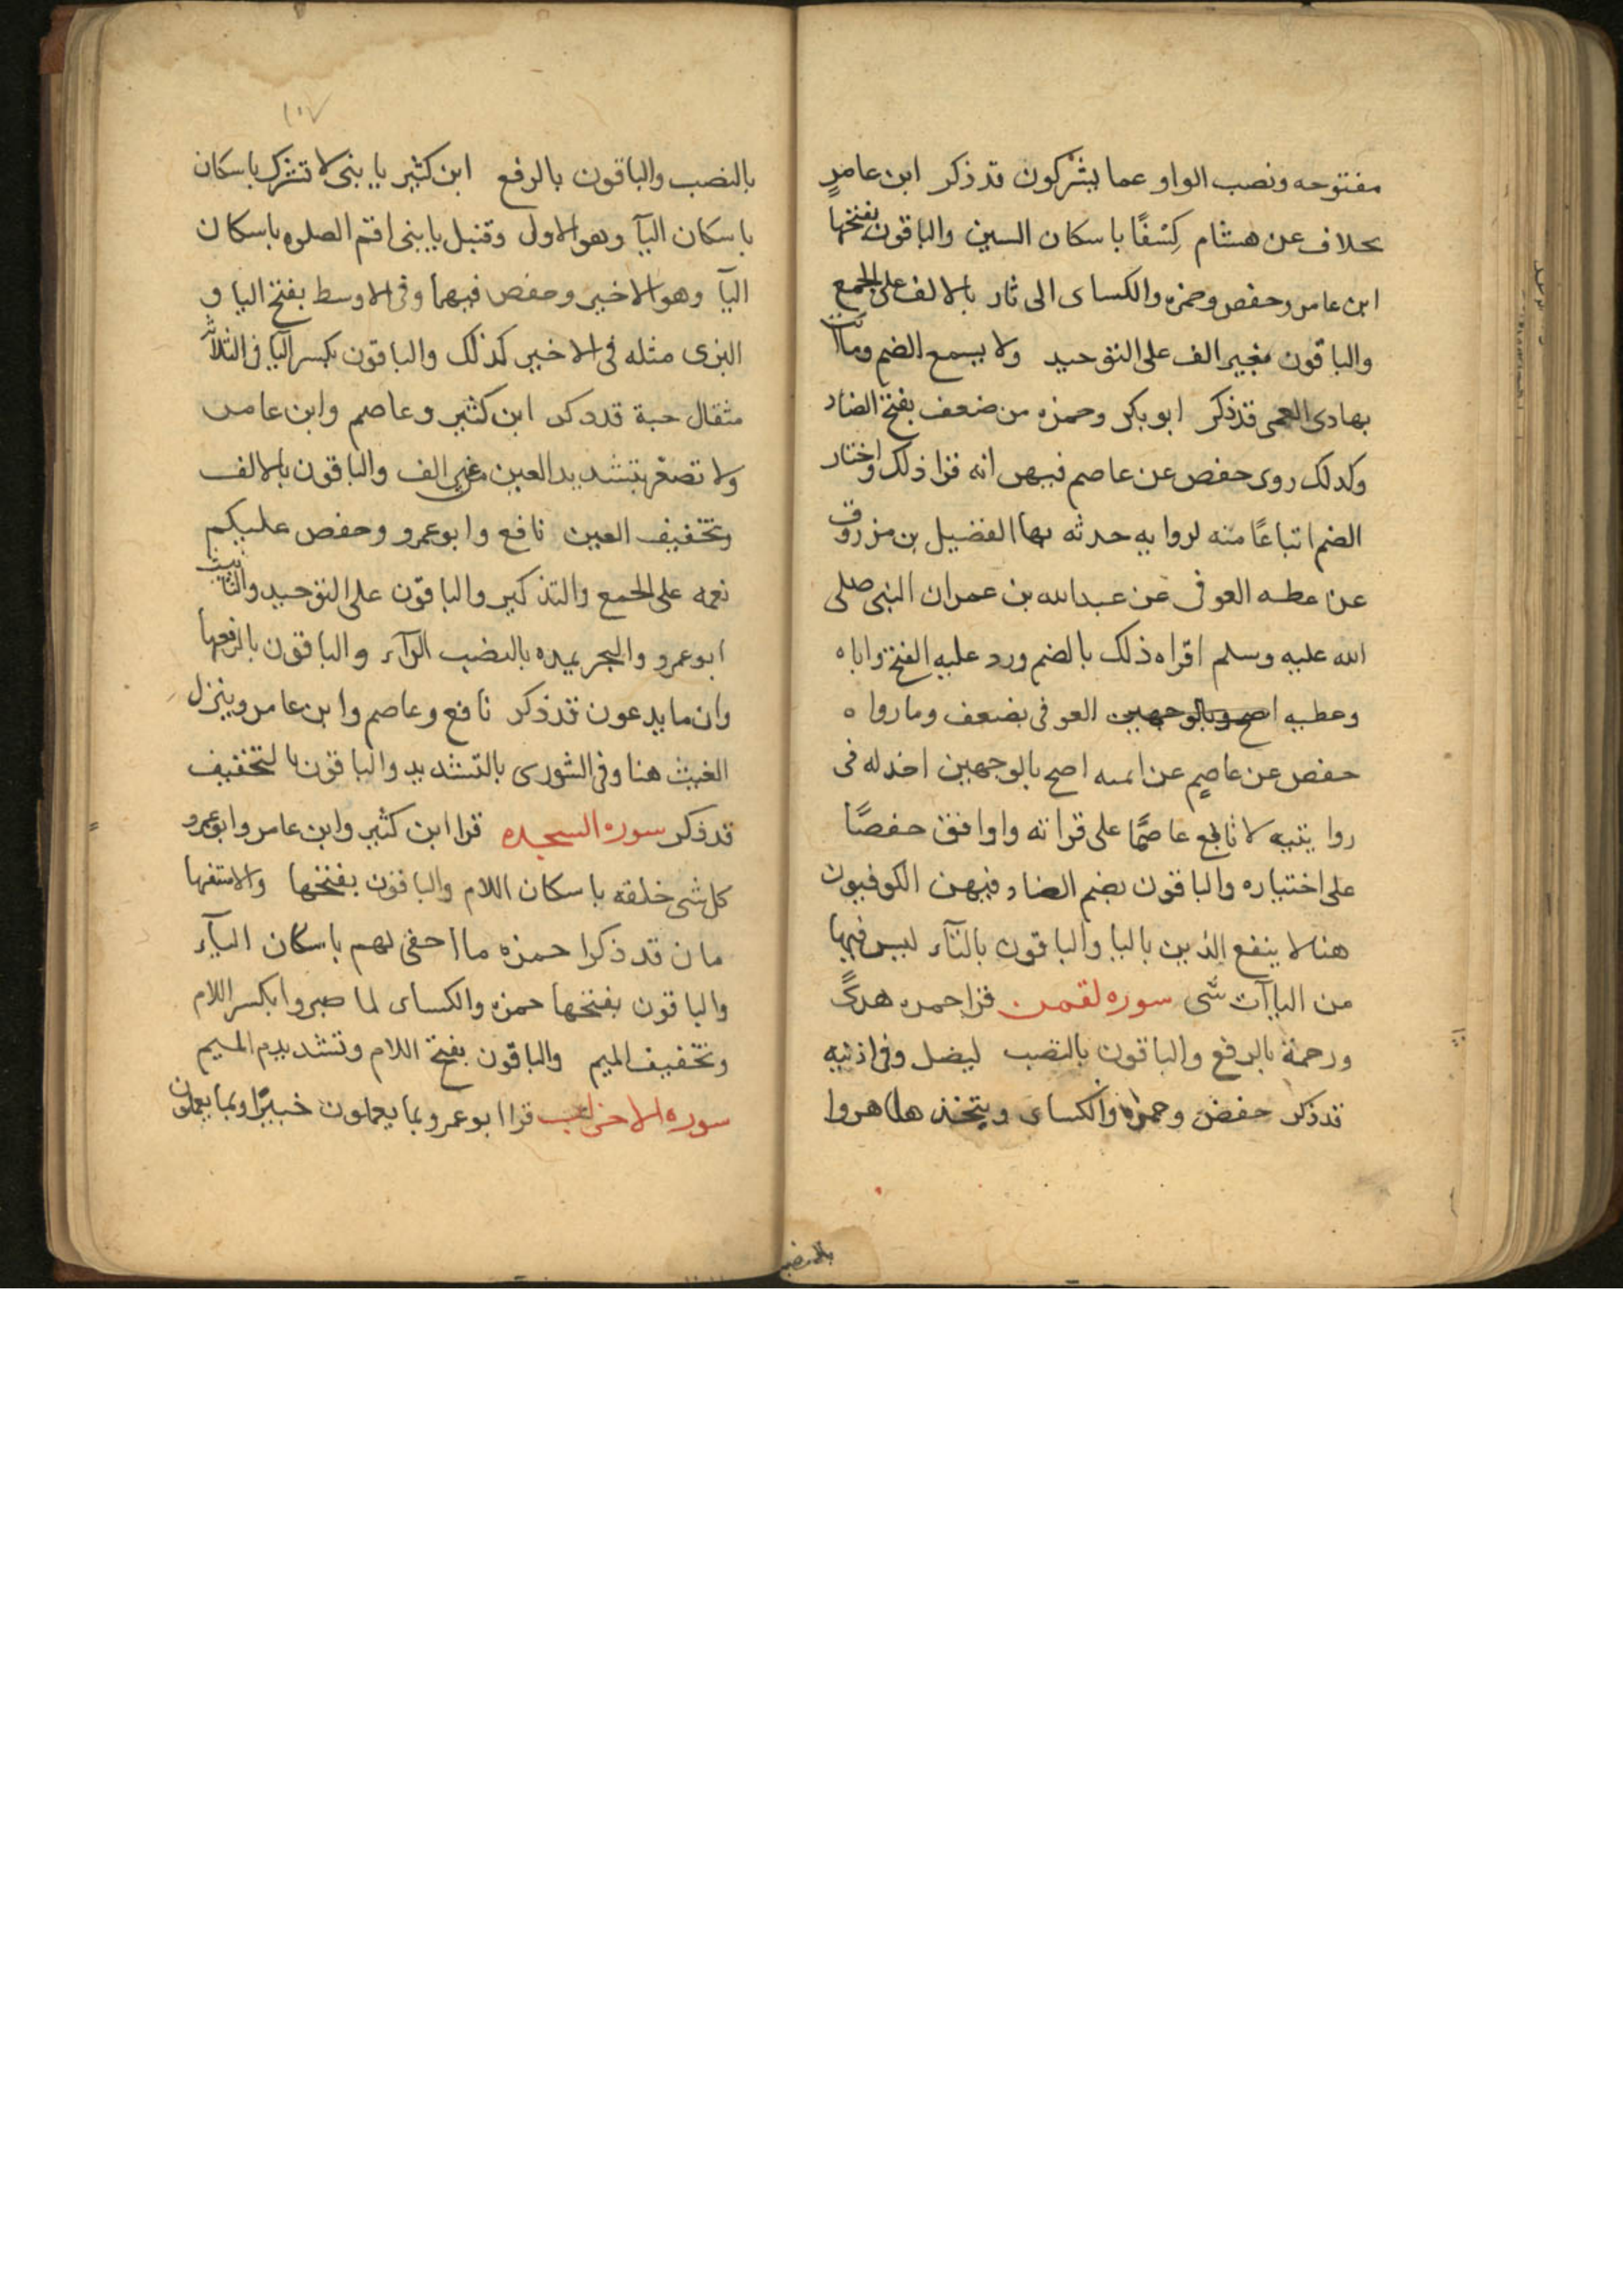 مفتوحه ونصب الواو عما يشركون قد ذكر ابن عامر
بخلاف عن هشام كِسْفًا باسكان السين والباقون بفتحها
ابن عامر وحفص وحمزه والكساى الى ثار بالالف على الجمع
والباقون بغير الف على التوحيد ولا يسمع الضم وما انت
بهادى العمى قد ذكر ابو بكر وحمزه من ضعف بفتح الضاد
وكدلك روى حفص عن عاصم فيهن انه قرا ذلك واختار
الضم اتباعًا منه لروايه حدثه بها الفضيل بن مرزوق
عن عطيه العوفى عن عبدالله بن عمران النبى صلى
الله عليه وسلم اقراه ذلك بالضم ورد عليه الفتح واباه
وعطيه العوفى يضعف وما رواه
حفص عن عاصم عن ايمته اصح بالوجهين اخذ له فى
روايتيه لا تابع عاصمًا على قراته واوافق حفصًا
على اختياره والباقون بضم الضاد فيهن الكوفيون
هنا لا ينفع الذين باليا والباقون بالتآء ليس فيها
من الياآت شى سوره لقمن قرا حمزه هدىً
ورحمة بالرفع والباقون بالنصب ليضل وفى اذنيه
قد ذكر حفص وحمزه والكساى ويتخذها هزوا
بالنصب
١٠٧
بالنصب والباقون بالرفع ابن كثير يا بنى لا تشرك باسكان
باسكان اليآ وهو الاول وقنبل يا بنى اقم الصلوه باسكان
اليآ وهو الاخير وحفص فيهما وفى الاوسط بفتح اليا و
البزى مثله فى الاخير كذلك والباقون بكسر اليآ فى الثلاثه
مثقال حبة قد ذكر ابن كثير وعاصم وابن عامر
ولا تصعر بتشديد العين من غير الف والباقون بالالف
وتخفيف العين نافع وابو عمرو وحفص عليكم
نعمه على الجمع والتذكير والباقون على التوحيد والتانيث
ابو عمرو والبحر يمده بالنصب الرآء والباقون بالرفعها
وان ما يدعون قد ذكر نافع وعاصم وابن عامر وينزل
الغيث هنا وفى الشورى بالتشديد والباقون بالتخفيف
قد ذكر سوره السجده قرا ابن كثير وابن عامر وابو عمرو
كل شى خلقه باسكان اللام والباقون بفتحها والاستفها
مان قد ذكرا حمزه ما اخفى لهم باسكان اليآء
والباقون بفتحها حمزه والكساى لما صبروا بكسر اللام
وتخفيف الميم والباقون بفتح اللام وتشديدم الميم
سوره الاحزاب قرا ابو عمرو بما يعملون خبيرًا وبما يعملون